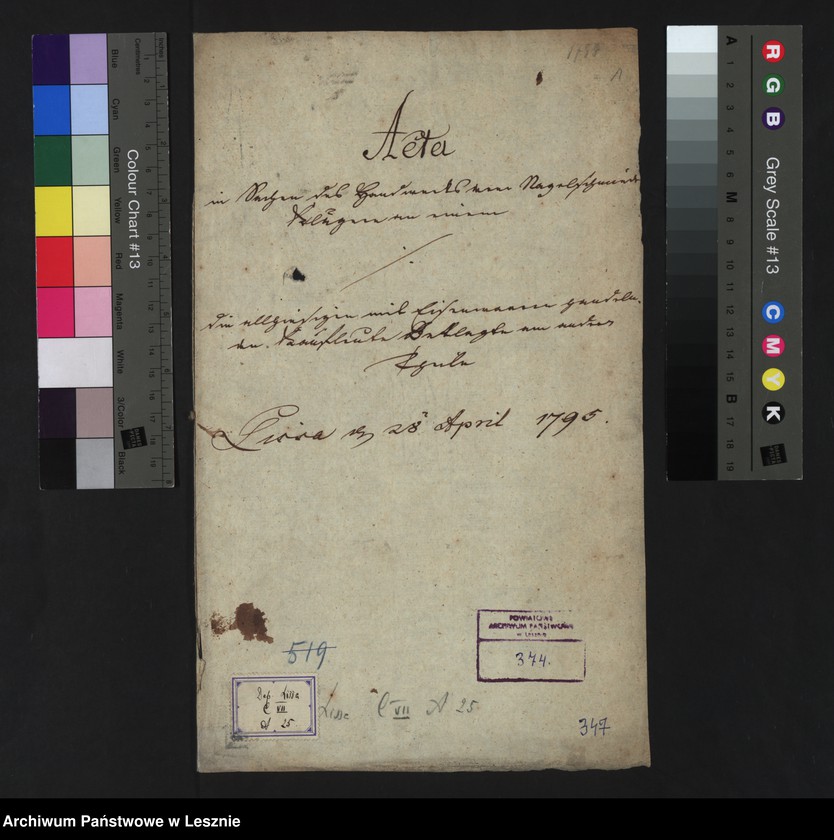 1795
1
Acta
in Sachen des Handwercks der Nagelschmiede
Klägere an einem
die allhiesigen mit Eisenwaaren handeln-
den Kaufleute Beklagte am andern
Theile
Lissa den 28t April 1795.
519
POWIATOWE
ARCHIWUM PAŃSTWOWE
w Lesznie
374.
Dep. Lissa
C VII
A 25
Lissa C VII A 25
347
Blue
Cyan
Green
Yellow
Red
Magenta
White
3/Color
Black
Colour Chart #13
Centimetres
Inches
Grey Scale #13
R
G
B
C
M
Y
K
A
1
2
3
4
5
6
M
8
9
10
11
12
13
14
15
B
17
18
19
Archiwum Państwowe w Lesznie